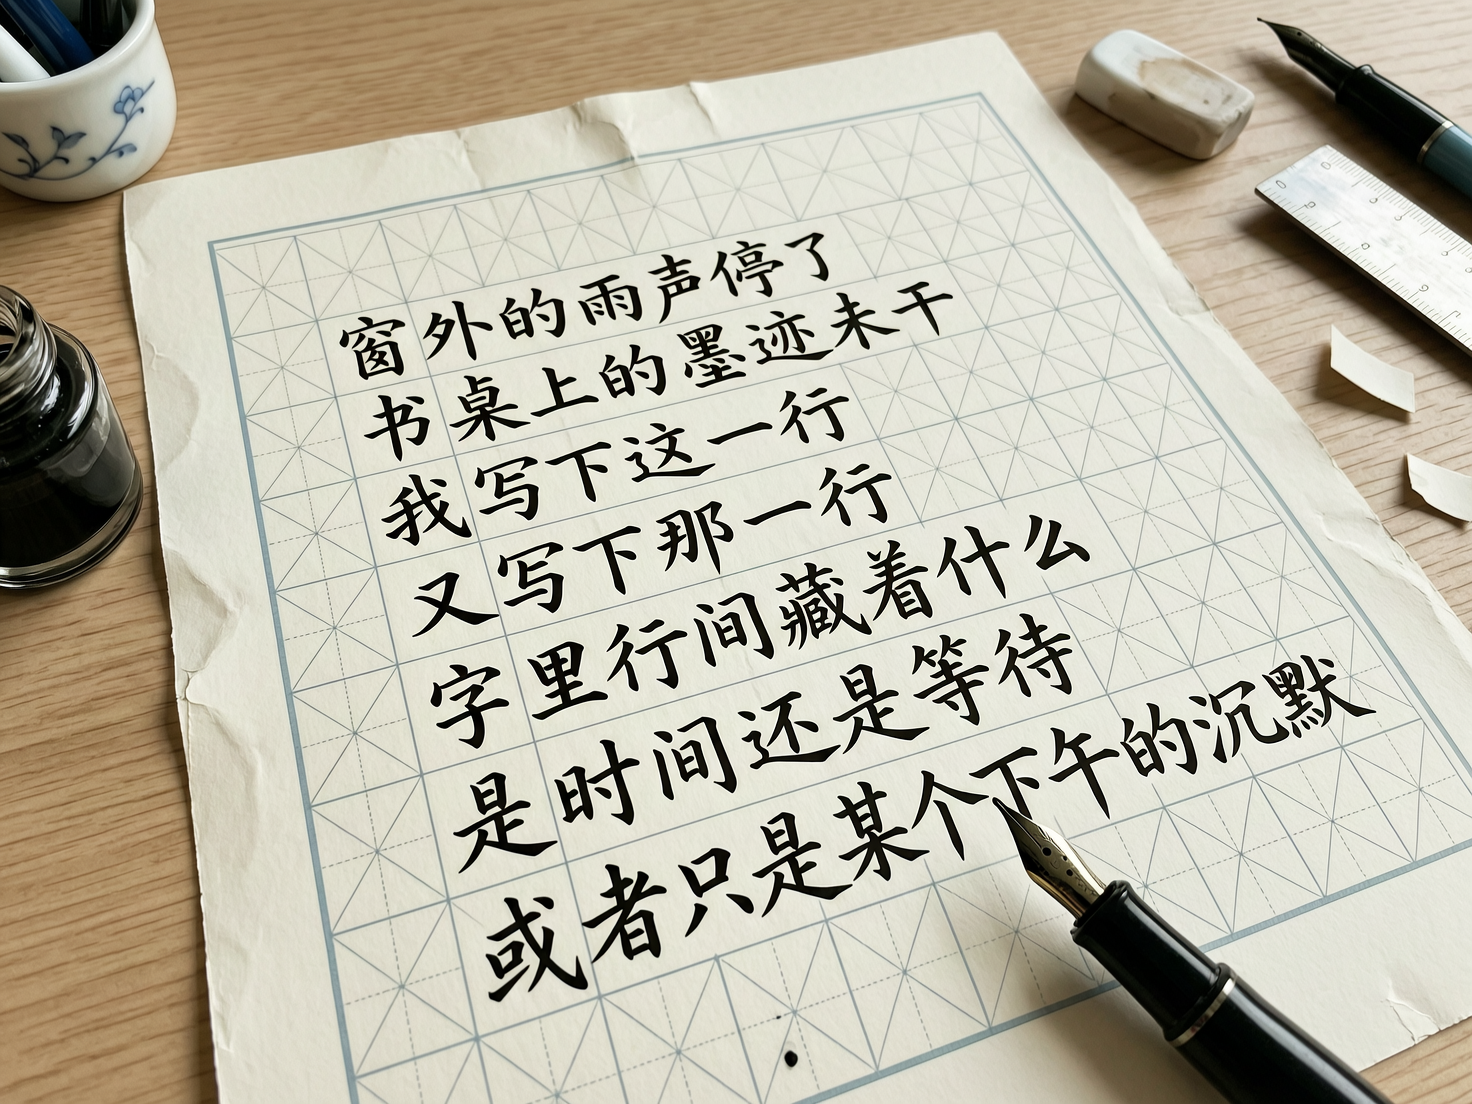 窗外的雨声停了
书桌上的墨迹未干
我写下这一行
又写下那一行
字里行间藏着什么
是时间还是等待
或者只是某个下午的沉默